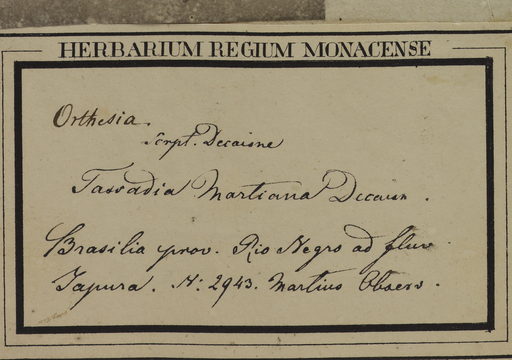 HERBARIUM REGIUM MONACENSE
Orthesia.
scrpt. Decaisne
Tassadia Martiana Decaisn.
Brasilia prov. Rio Negro ad fluv.
Japura. N: 2943. Martius Observ.